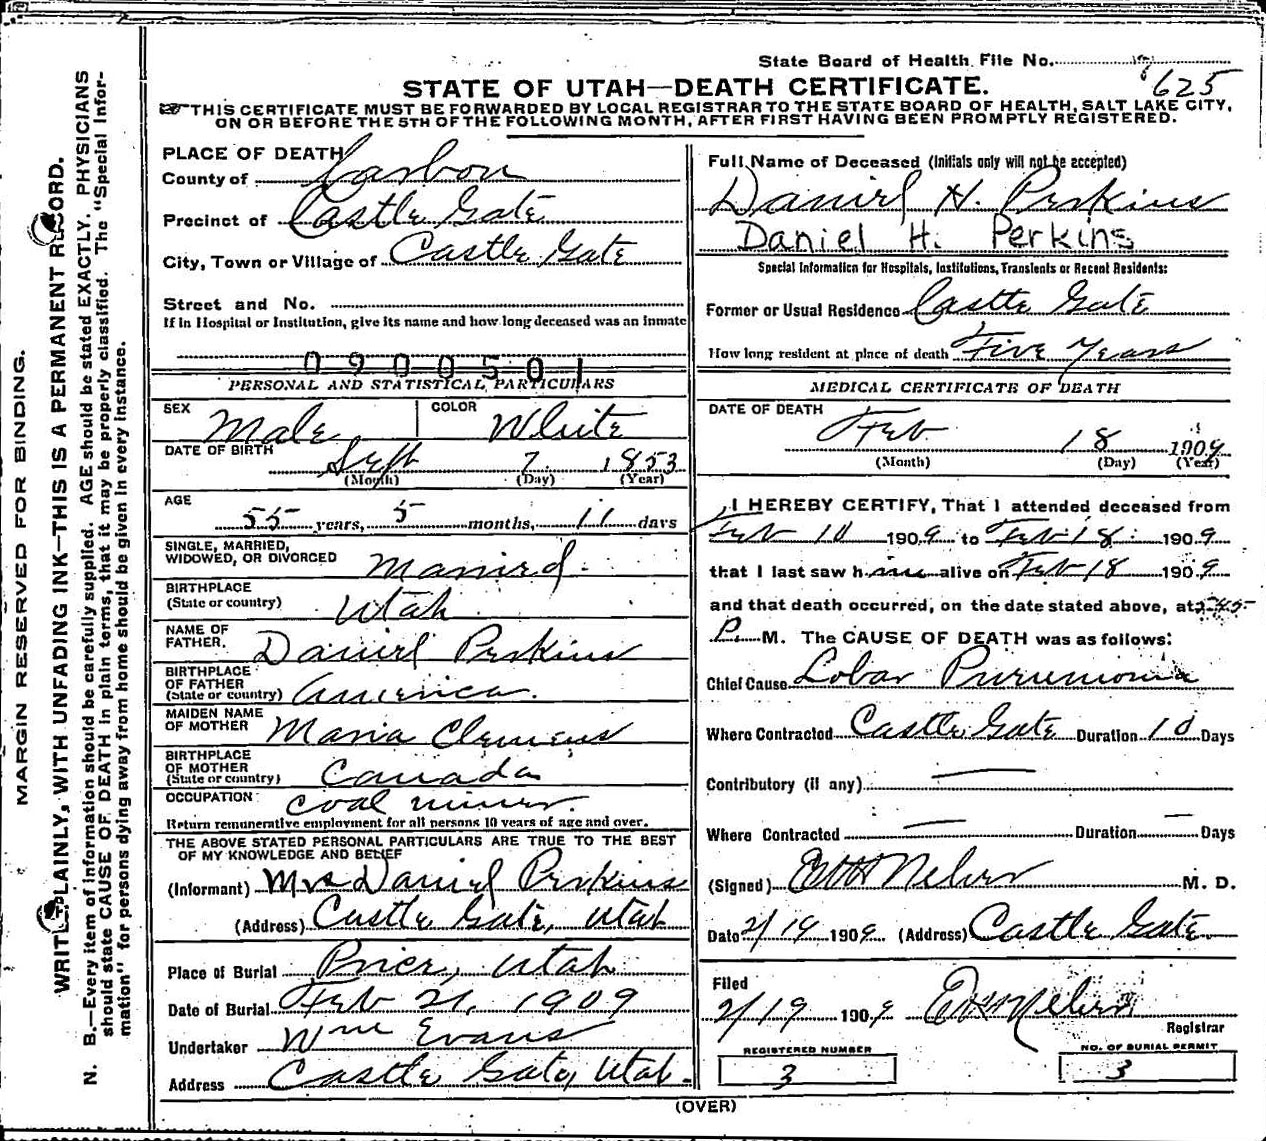 State Board of Health File No. 625
STATE OF UTAH—DEATH CERTIFICATE.
THIS CERTIFICATE MUST BE FORWARDED BY LOCAL REGISTRAR TO THE STATE BOARD OF HEALTH, SALT LAKE CITY,
ON OR BEFORE THE 5TH OF THE FOLLOWING MONTH, AFTER FIRST HAVING BEEN PROMPTLY REGISTERED.
MARGIN RESERVED FOR BINDING.
WRITE PLAINLY, WITH UNFADING INK—THIS IS A PERMANENT RECORD.
N. B.—Every item of information should be carefully supplied. AGE should be stated EXACTLY. PHYSICIANS
should state CAUSE OF DEATH in plain terms, that it may be properly classified. The "Special Infor-
mation" for persons dying away from home should be given in every instance.
PLACE OF DEATH
County of Carbon
Precinct of Castle Gate
City, Town or Village of Castle Gate
Street and No.
If in Hospital or Institution, give its name and how long deceased was an inmate
0900501
PERSONAL AND STATISTICAL PARTICULARS
SEX Male COLOR White
DATE OF BIRTH Sept 7 1853
(Month) (Day) (Year)
AGE
55 years, 5 months, 11 days
SINGLE, MARRIED,
WIDOWED, OR DIVORCED Married.
BIRTHPLACE
(State or country) Utah
NAME OF
FATHER. Daniel Perkins
BIRTHPLACE
OF FATHER
(State or country) America.
MAIDEN NAME
OF MOTHER Maria Clemens
BIRTHPLACE
OF MOTHER
(State or country) Canada
OCCUPATION coal miner.
Return remunerative employment for all persons 10 years of age and over.
THE ABOVE STATED PERSONAL PARTICULARS ARE TRUE TO THE BEST
OF MY KNOWLEDGE AND BELIEF
(Informant) Mrs Daniel Perkins
(Address) Castle Gate, Utah
Place of Burial Price, Utah
Date of Burial Feb 21, 1909
Undertaker Wm Evans
Address Castle Gate, Utah.
Full Name of Deceased (Initials only will not be accepted)
Daniel H. Perkins
Daniel H. Perkins
Special Information for Hospitals, Institutions, Transients or Recent Residents:
Former or Usual Residence Castle Gate
How long resident at place of death Five Years
MEDICAL CERTIFICATE OF DEATH
DATE OF DEATH
Feb 18 1909
(Month) (Day) (Year)
I HEREBY CERTIFY, That I attended deceased from
Feb 10 1909 to Feb 18 1909
that I last saw him alive on Feb 18 1909
and that death occurred, on the date stated above, at
P. M. The CAUSE OF DEATH was as follows:
Chief Cause Lobar Pneumonia
Where Contracted Castle Gate Duration 10 Days
Contributory (if any) —
Where Contracted — Duration — Days
(Signed) M. D.
Date 2/19 1909 (Address) Castle Gate
Filed
2/19 1909
Registrar
REGISTERED NUMBER
3
NO. OF BURIAL PERMIT
3
(OVER)